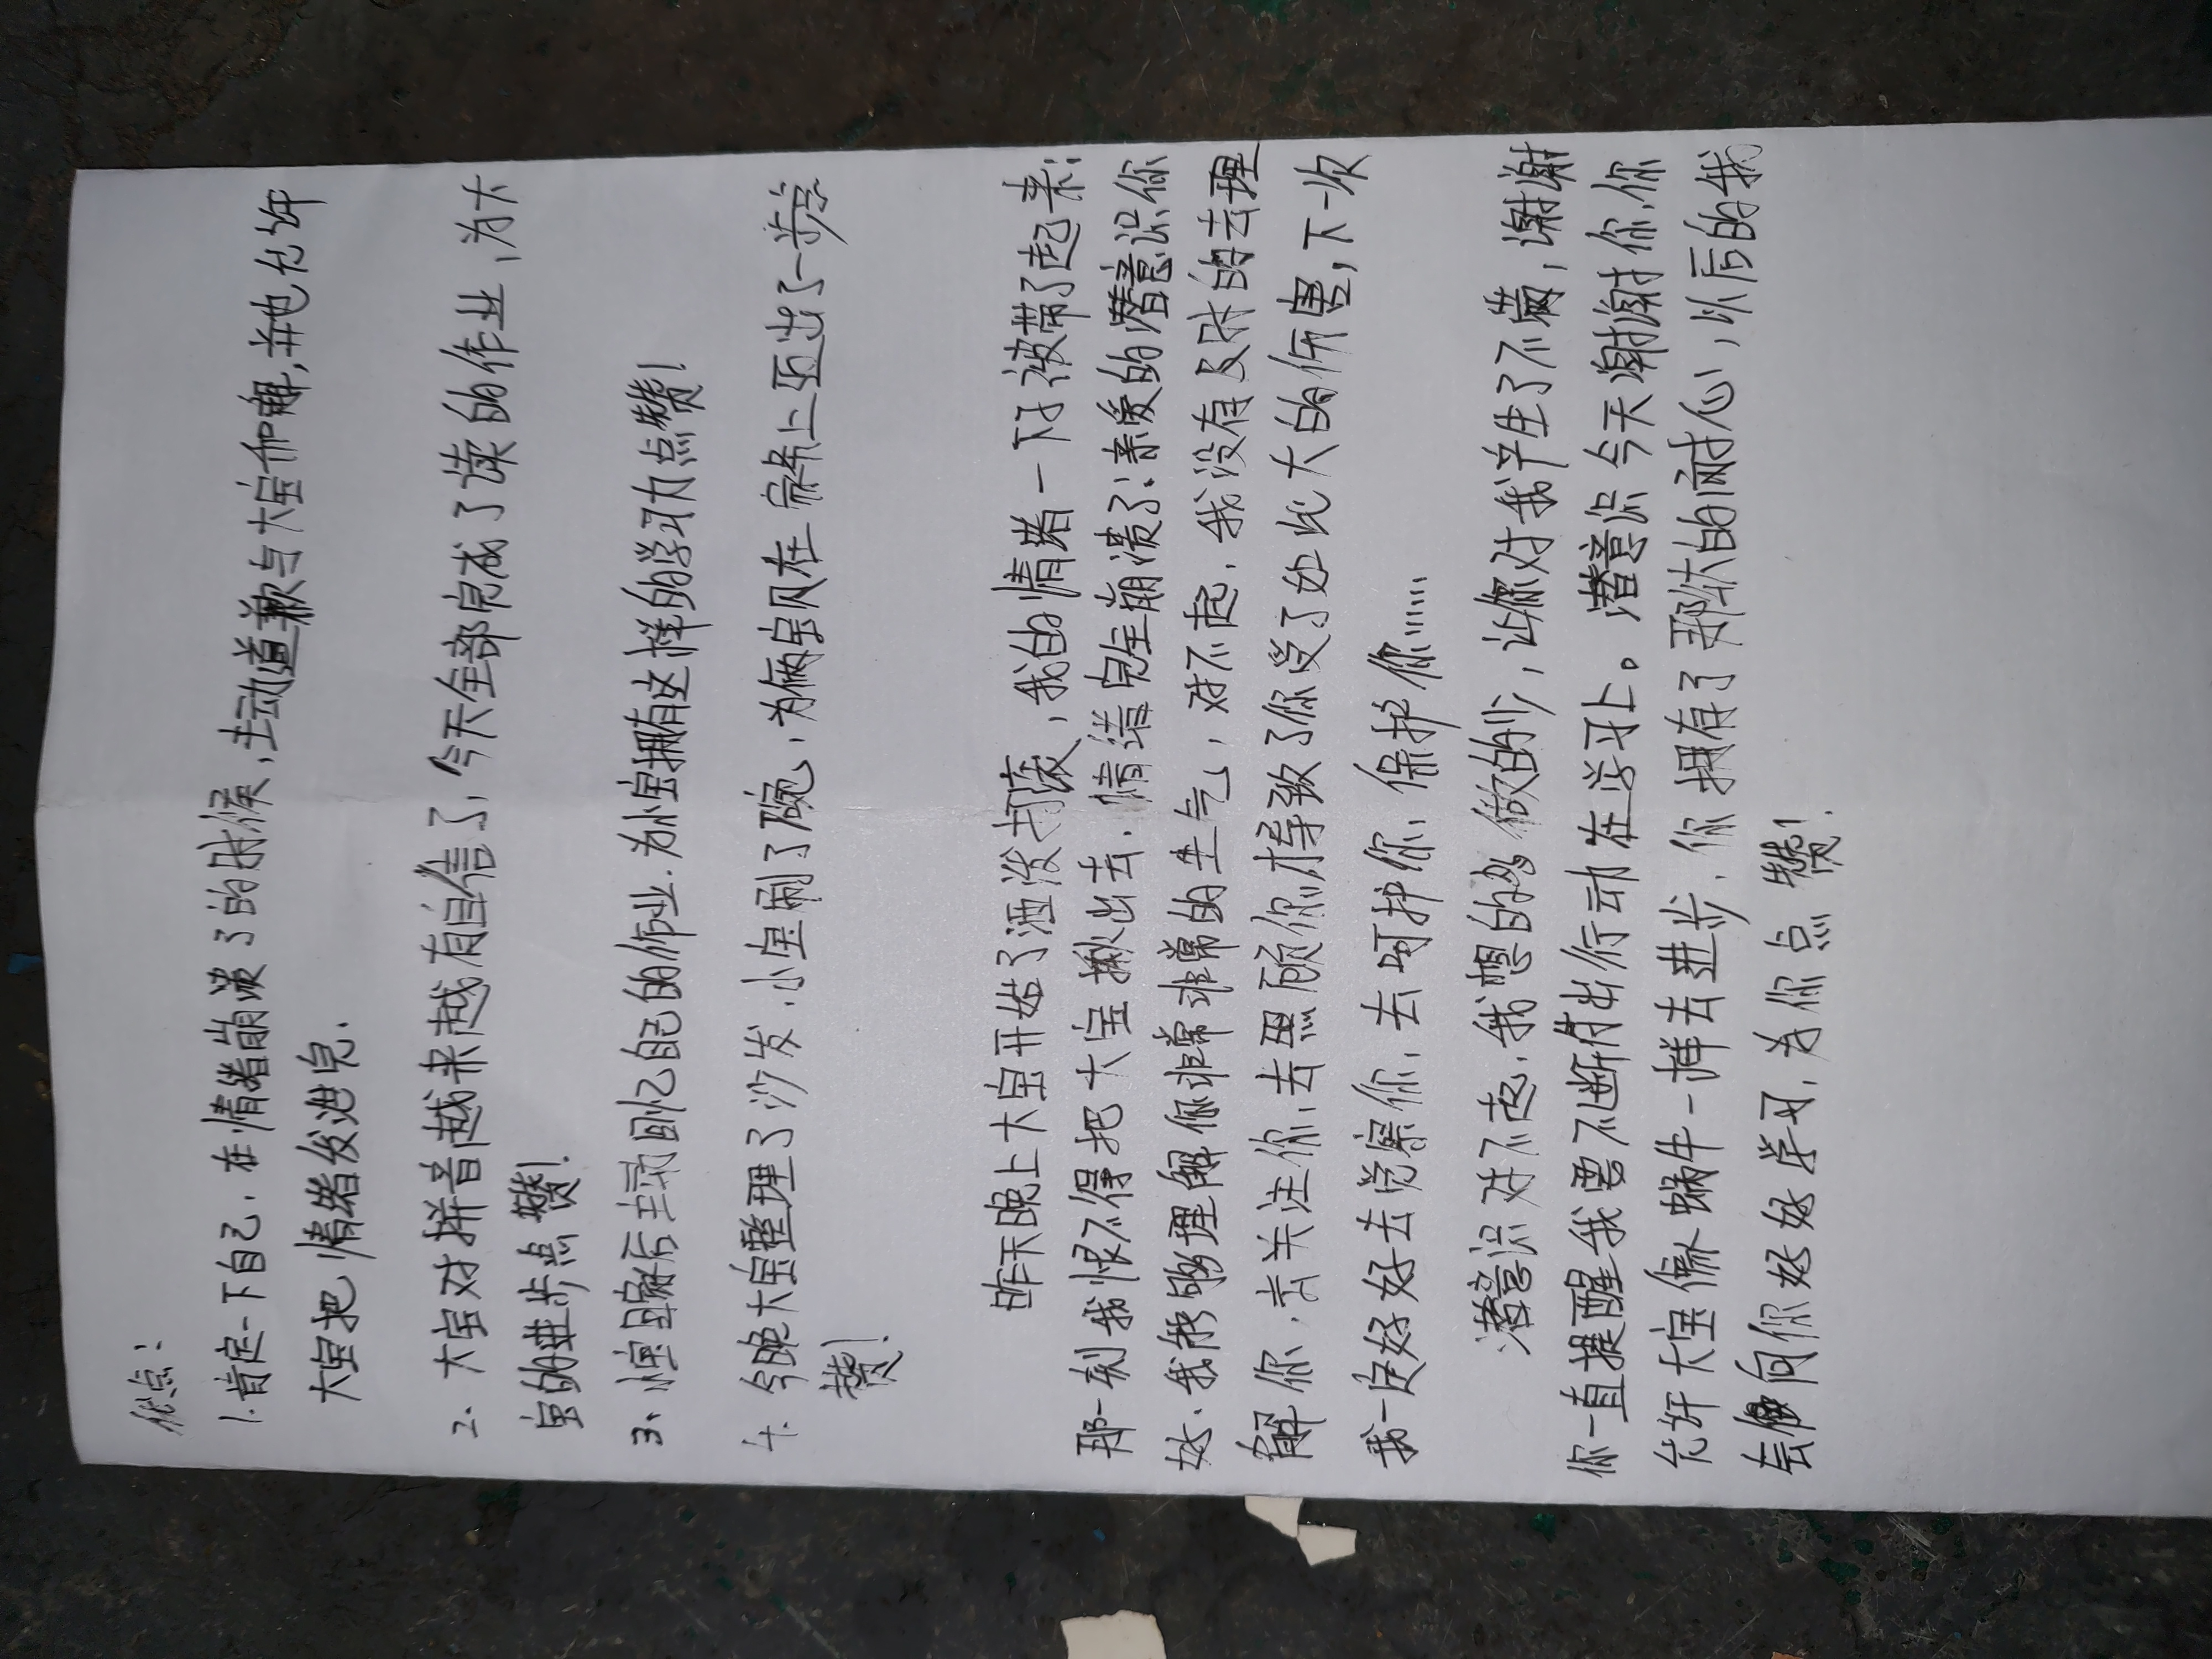 优点：
1.肯定一下自己，在情绪崩溃了的时候，主动道歉与大宝和解，并也允许
大宝把情绪发泄完.
2. 大宝对拼音越来越有自信了，今天全部完成了读的作业，为大
宝的进步点赞！
3、小宝睡觉后主动回忆自己的作业.为小宝拥有这样的学习力点赞！
4. 今晚大宝整理了沙发，小宝刷了碗，为俩宝贝在家务上迈出了一步点
赞！
昨天晚上大宝开始了洒泼打滚，我的情绪一下子被带了起来；
那一刻我恨不得把大宝揪出去.情绪完全崩溃了.亲爱的潜意识你
好.我能够理解你非常非常的生气，对不起.我没有及时的去理
解你，去关注你，去照顾你，才导致了你受了如此大的伤害，下一次
我一定好好去觉察你、去呵护你、保护你……
潜意识对不起.我想的多做的少，让你对我产生了不满，谢谢
你一直提醒我要不断付出行动在学习上。潜意识今天谢谢你.你
允许大宝像蜗牛一样去进步.你拥有了那么大的耐心，以后的我
会向你好好学习.为你点赞！